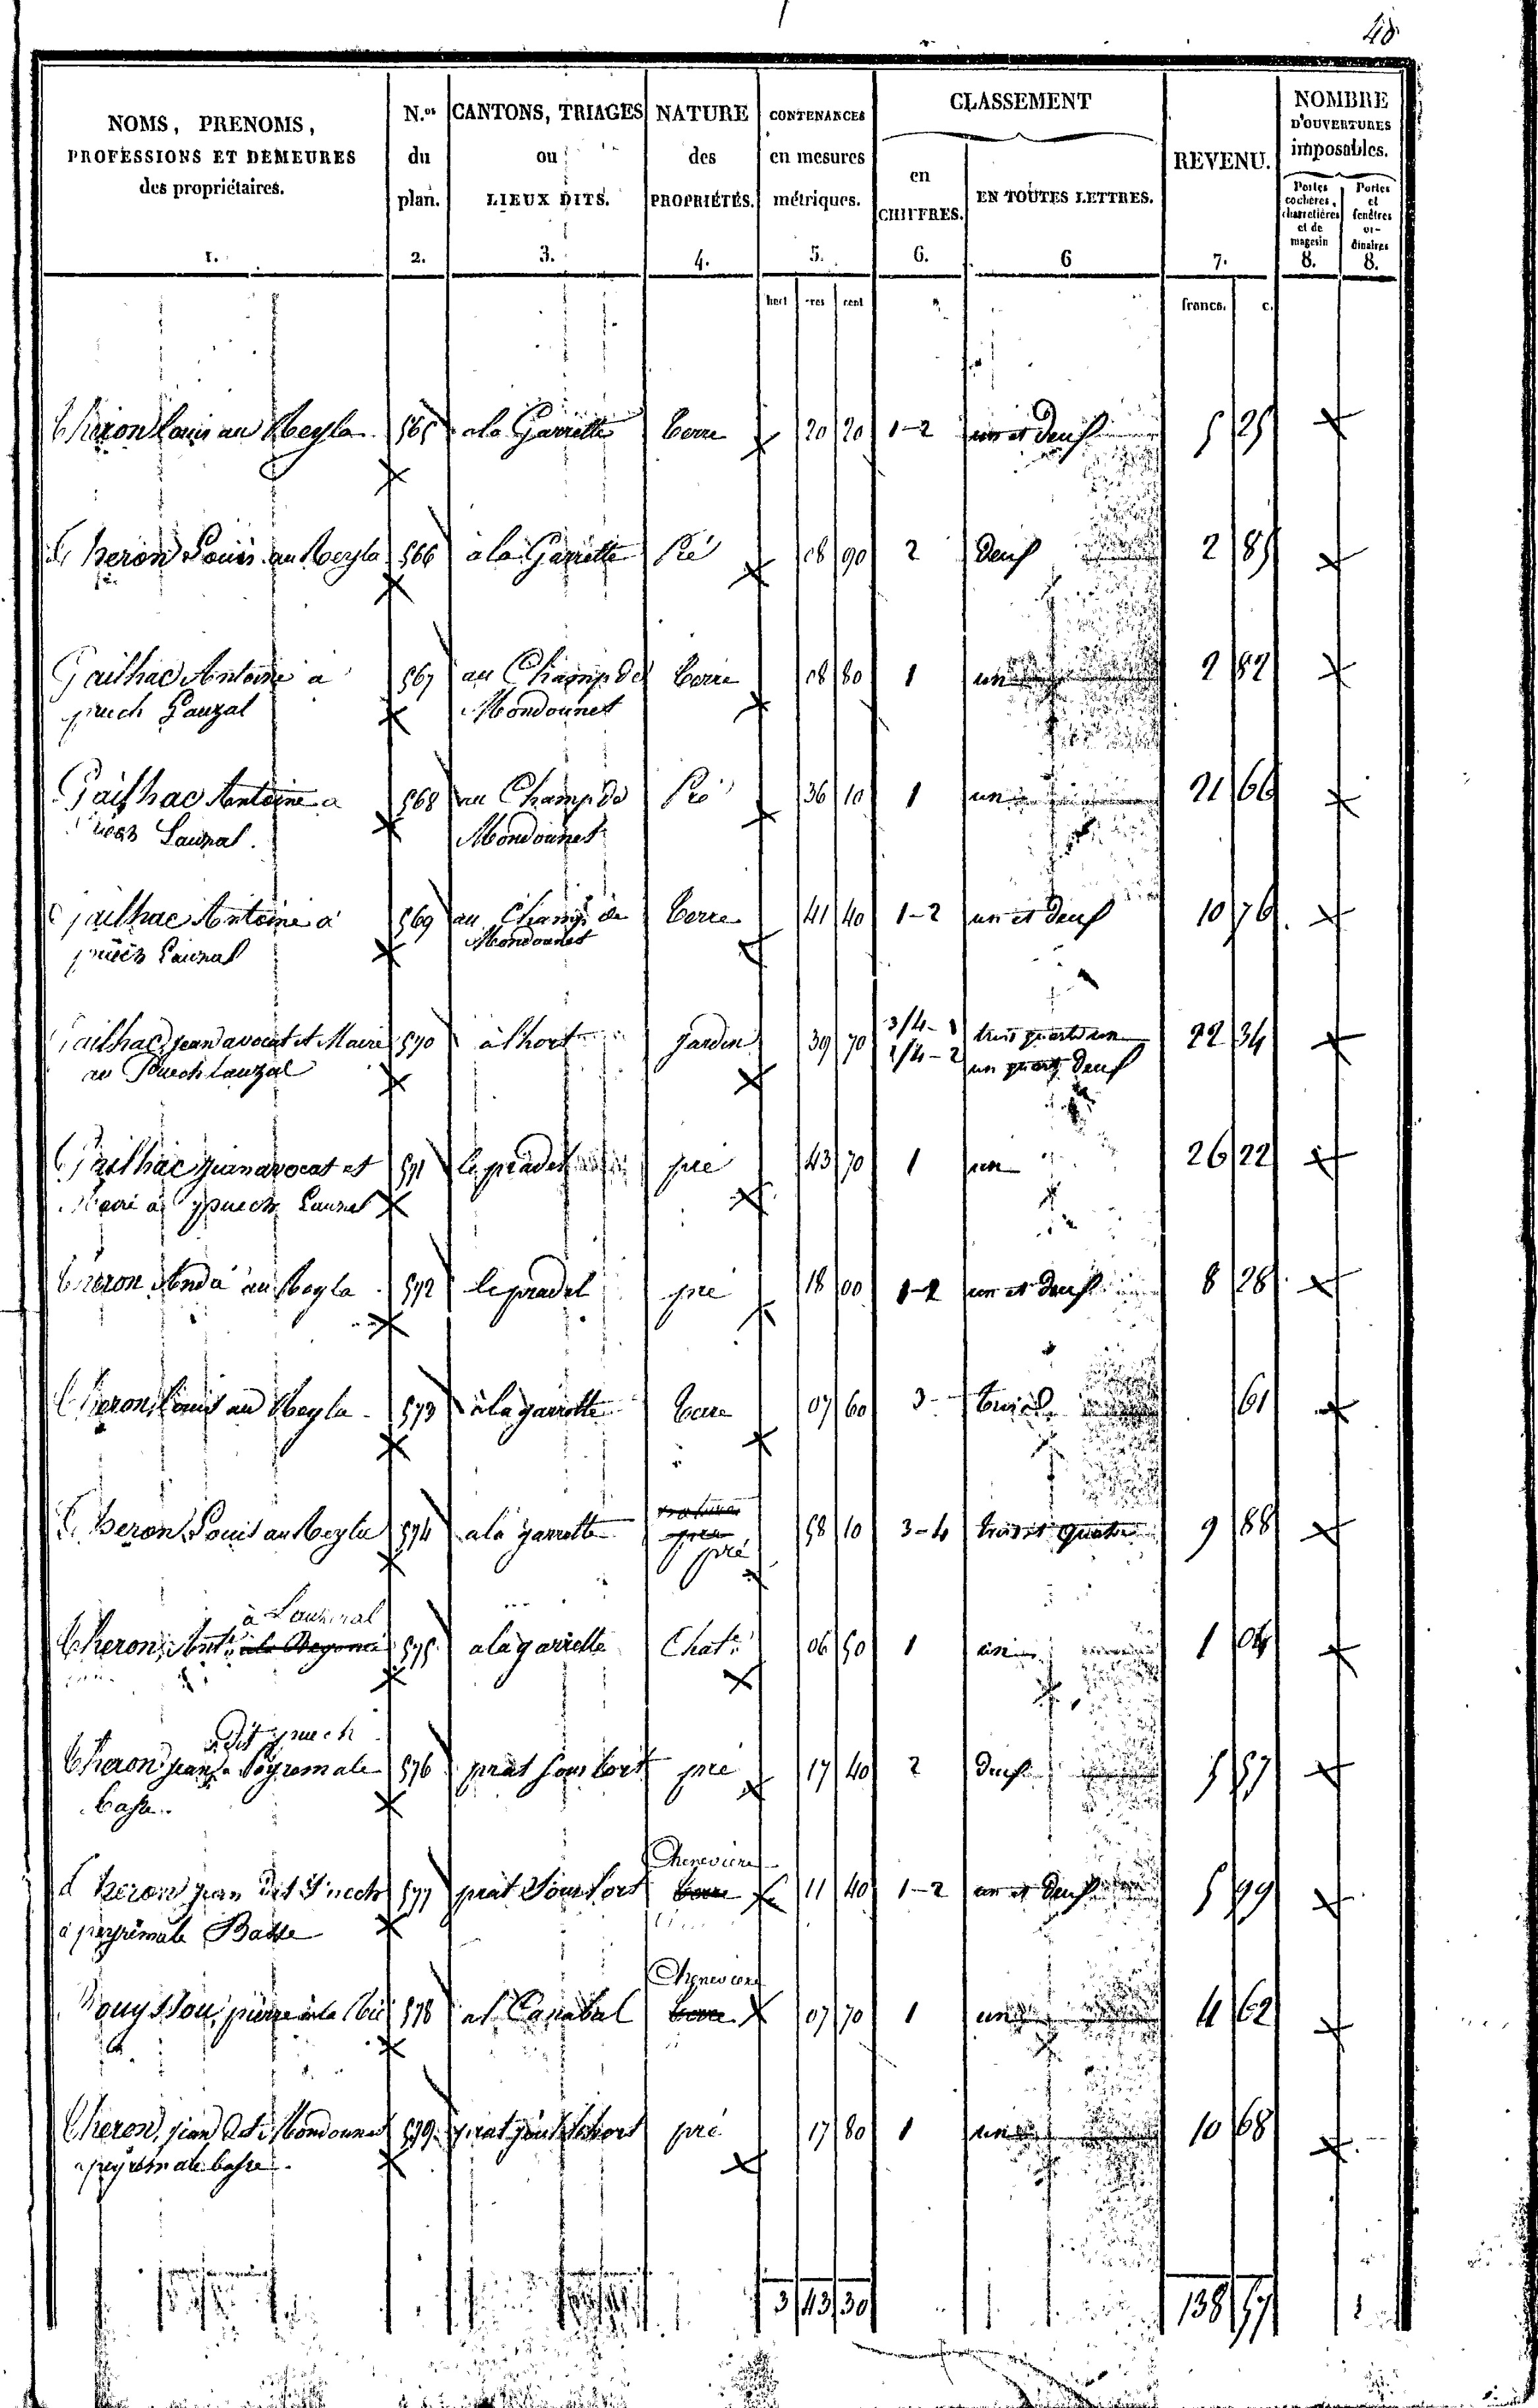 48
NOMS, PRENOMS,
PROFESSIONS ET DEMEURES
des propriétaires.
1.
N.os
du
plan.
2.
CANTONS, TRIAGES
ou
LIEUX DITS.
3.
NATURE
des
PROPRIÉTÉS.
4.
CONTENANCES
en mesures
métriques.
5.
CLASSEMENT
en
CHIFFRES.
6.
EN TOUTES LETTRES.
6
REVENU.
7.
NOMBRE
D'OUVERTURES
imposables.
Portes
cochères,
charretières
et de
magasin
8.
Portes
et
fenêtres
or-
dinaires
8.
hect ares cent francs. c.
Theron Louis au Meyla 565 a la Garrette terre 20 20 1-2 un et deux 5 25
Theron Louis au Meyla 566 à la Garrette Pré 08 90 2 deux 2 85
Gailhac Antoine a 567 au Champ de terre 08 80 1 un 2 82
puech Lauzal Mondounet
Gailhac Antoine a 568 au Champ de Pré 36 10 1 un 21 66
Lauzal Mondounet
Gailhac Antoine a 569 au Champ de terre 41 40 1-2 un et deux 10 76
puech Lauzal Mondounet
Gailhac jean avocat et Maire 570 à l'hort jardin 39 70 3/4-1 trois quarts un 22 34
au Puech Lauzal 1/4-2 un quart deux
Gailhac jean avocat et 571 le pradel pré 43 70 1 un 26 22
Maire a puech Lauzal
Theron André au Meyla 572 le pradel pré 18 00 1-2 un et deux 8 28
Theron Louis au Meyla 573 à la garrette terre 07 60 3 trois 61
Theron Louis au Meyla 574 a la garrette pré 58 10 3-4 trois et quatre 9 88
à Lauzeral
Theron Ant.e 575 a la garrette Chat.e 06 50 1 un 1 04
dit puech
Theron jean a Peyremale 576 prat sous lort pré 17 40 2 deux 5 57
basse
Chenevière
Theron jean dit Puech 577 prat sous lort terre 11 40 1-2 un et deux 5 99
a peyremale Basse
Chenevière
pierre à la 578 al Canabal terre 07 70 1 un 4 62
Theron jean dit Mondounet 579 prat sous lort pré 17 80 1 un 10 68
a peyremale basse
3 43 30 138 57